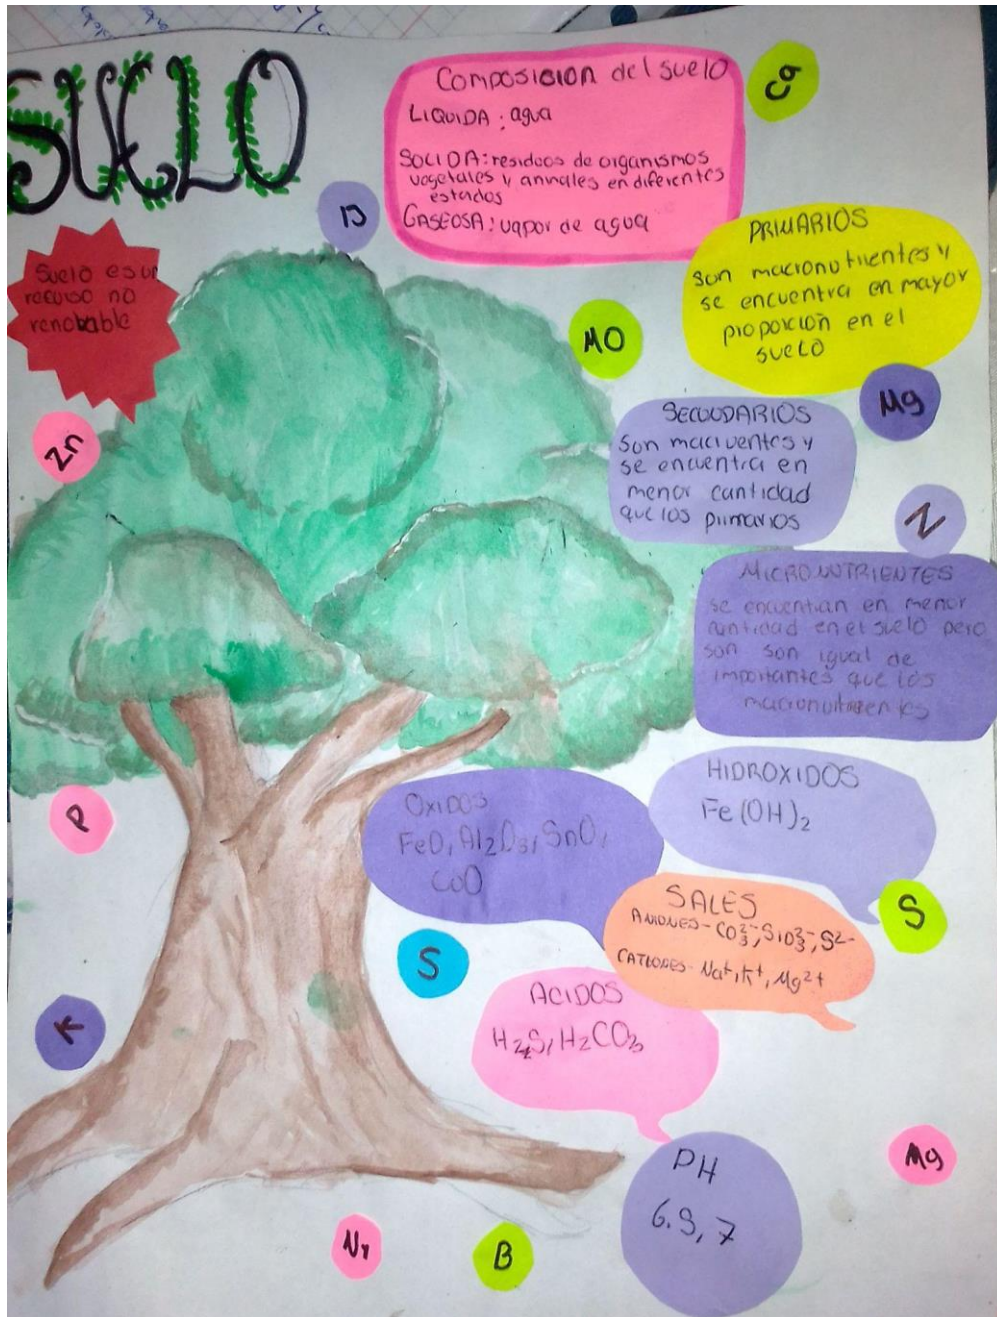 SUELO
Composicion del suelo
LIQUIDA: agua
SOLIDA: residuos de organismos
vegetales y animales en diferentes
estados
GASEOSA: vapor de agua
Ca
B
Suelo es un
recurso no
renobable
PRIMARIOS
Son macronutrientes y
se encuentra en mayor
proporción en el
suelo
MO
Mg
Zn
SECUNDARIOS
Son macruentes y
se encuentra en
menor cantidad
que los primarios
N
MICRONUTRIENTES
se encuentran en menor
cantidad en el suelo pero
son son igual de
importantes que los
macronutrientes
P
OXIDOS
FeO, Al₂O₃, SnO,
CoO
HIDROXIDOS
Fe(OH)₂
SALES
ANIONES - CO₃²⁻, SiO₃²⁻, S²⁻
CATIONES - Na⁺, K⁺, Mg²⁺
S
S
ACIDOS
H₂S, H₂CO₃
K
PH
6.9, 7
Mg
B